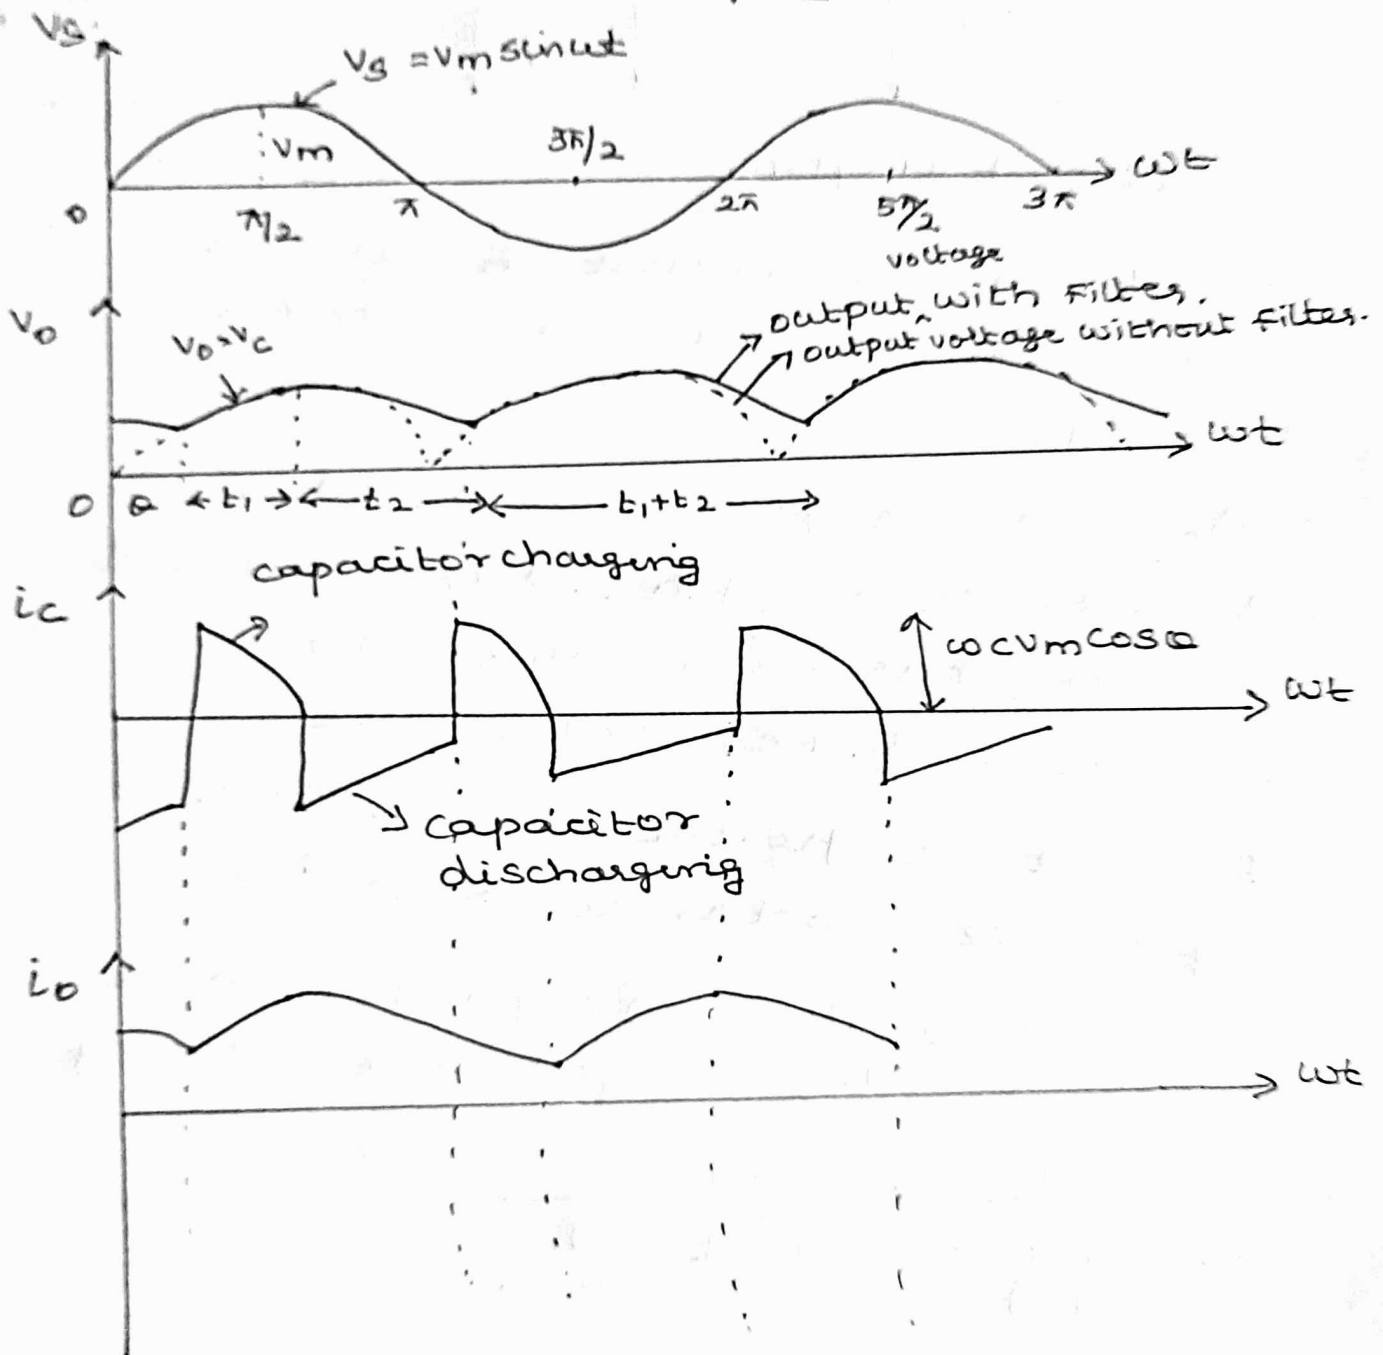 Vs
Vs = Vm sin ωt
Vm
3π/2
ωt
0
π/2
π
2π
5π/2
3π
voltage
output ^ with Filter.
output voltage without filter.
Vo
Vo = Vc
ωt
0
θ
t1
t2
t1+t2
capacitor charging
ic
ωcVm cosθ
ωt
capacitor
discharging
io
ωt